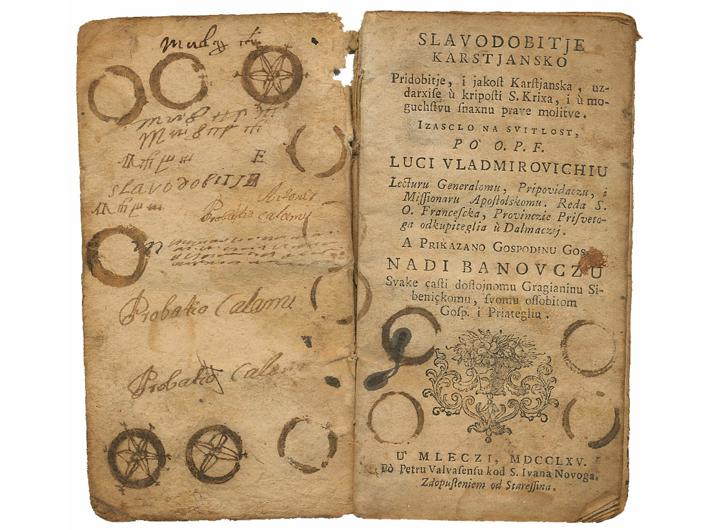 E
SLAVODOBITJE
Probatio calamj
Probatio Calami
Probatio Calam
SLAVODOBITJE
KARSTJANSKO
Pridobitje, i jakoſt Karſtjanska, uz-
darxiſe ù kripoſti S. Krixa, i ù mo-
guchſtvu ſnaxnu prave molitve.
IZASCLO NA SVITLOST,
PO' O. P. F.
LUCI VLADMIROVICHIU
Lecturu Generalomu, Pripovidaczu, i
Miſſionaru Apoſtolskomu. Reda S.
O. Franceſcka, Provinczie Priſveto-
ga odkupiteglia ù Dalmaczj.
A PRIKAZANO GOSPODINU GOS.
NADI BANOVCZU
Svake çaſti doſtojnomu Gragianinu Si-
beniçkomu, ſvomu oſſobitom
Goſp. i Priategliu.
U' MLECZI, MDCCLXV.
Pò Petru Valvaſenſu kod S. Ivana Novoga.
Zdopuſteniem od Stareſſina.